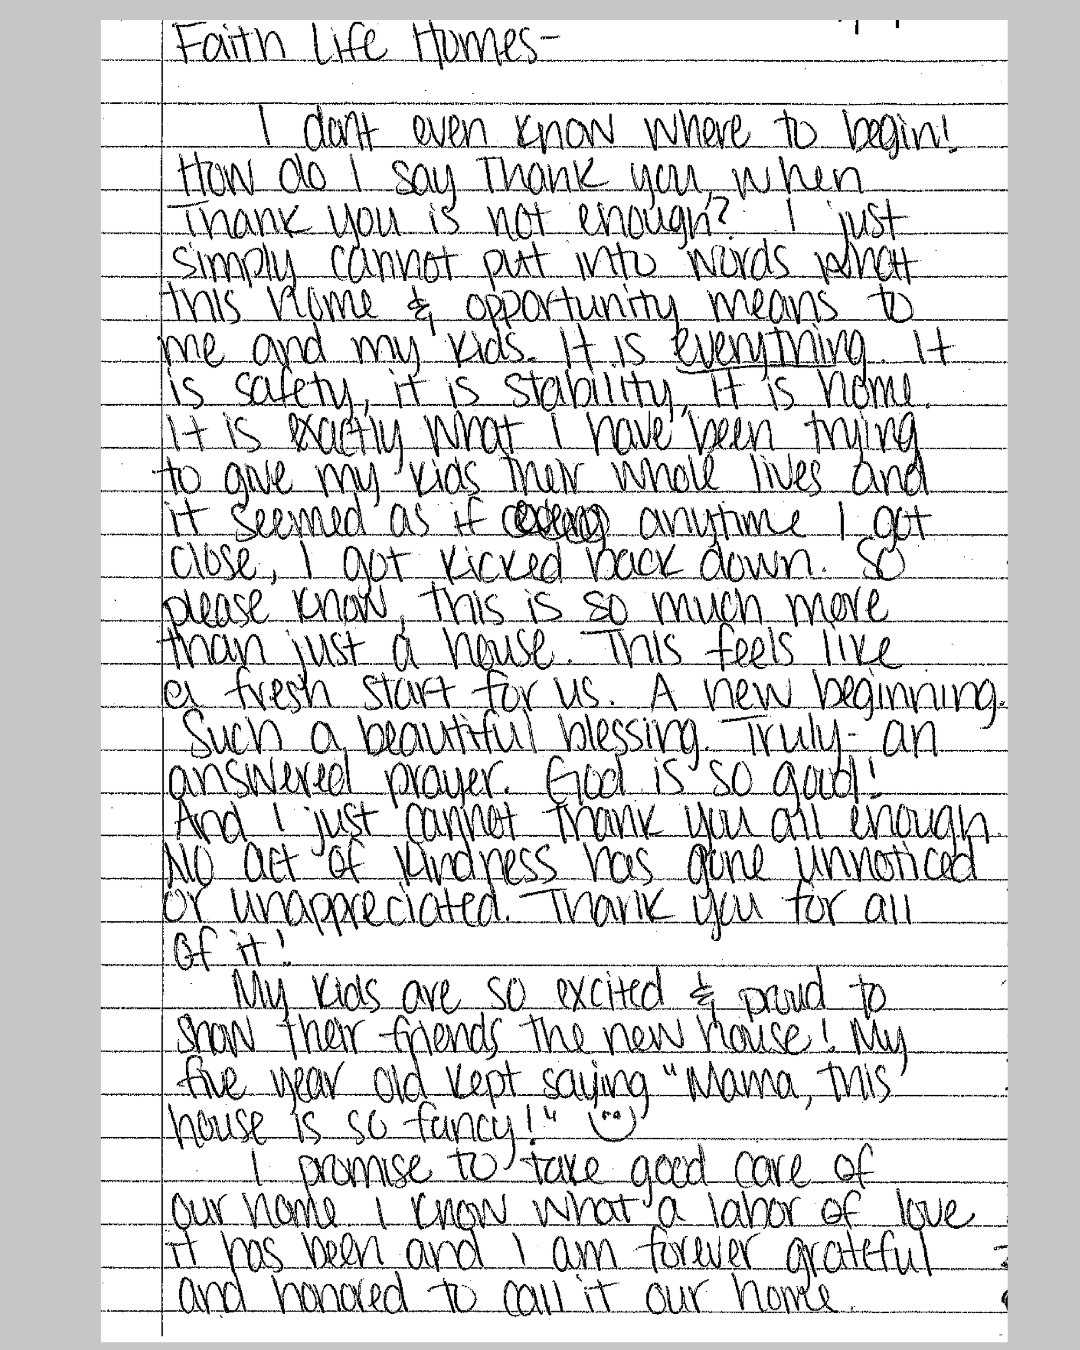 Faith Life Homes-
I don't even know where to begin!
How do I say Thank you, when
Thank you is not enough? I just
simply cannot put into words what
this home & opportunity means to
me and my kids. It is everything. It
is safety, it is stability, it is home.
It is exactly what I have been trying
to give my kids their whole lives and
it seemed as if anytime I got
close, I got kicked back down. So
please know, this is so much more
than just a house. This feels like
a fresh start for us. A new beginning.
Such a beautiful blessing. Truly- an
answered prayer. God is so good!
And I just cannot thank you all enough.
No act of kindness has gone unnoticed
or unappreciated. Thank you for all
of it!
My kids are so excited & proud to
show their friends the new house! My
five year old kept saying "Mama, this
house is so fancy!"
I promise to take good care of
our home I know what a labor of love
it has been and I am forever grateful
and honored to call it our home.